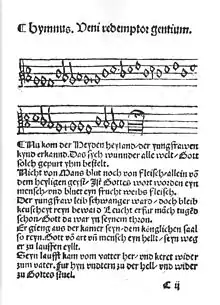 Hymnus. Veni redemptor gentium.
Nu kom der Heyden heyland/der yungfrawen
kynd erkannd. Das sych wunnder alle welt/Gott
solch gepurt yhm bestelt.
Nicht von Mans blut noch von fleisch/allein von
dem heyligen geist/Ist Gottes wort worden eyn
mensch/vnd bluet eyn frucht weibs fleisch.
Der yungfraw leib schwanger ward/doch bleib
keuscheyt reyn beward Leucht erfur mäch tugend
schon/Gott da war yn seynem thron.
Er gieng aus der kamer seyn/dem könglichen saal
so reyn. Gott võ art vñ mensch eyn hellt/seyn weg
er zu lauffen eyllt.
Seyn laufft kam vom vatter her/vnd keret wider
zum vater. fur hyn vndtern zu der hell/vnd wider
zu Gottes stuel.
C ij